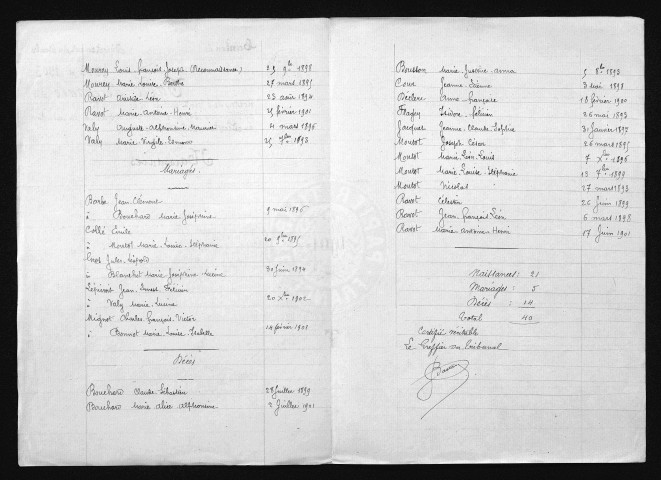 Mourey Louis François Joseph (Reconnaissance) 25 9bre 1898
Mourey Marie Louise Berthe 27 mars 1895
Ravot Aristide Léon 23 août 1894
Ravot Marie Antoine Henri 25 février 1901
Valy Auguste Alphonsine Maurice 4 mars 1896
Valy Marie Virgile Edmond 25 7bre 1893
Mariages.
Barbe Jean Clément
à Bouchard Marie Joséphine 9 mai 1896
Collé Emile
à Montot Marie Louise Stéphanie 20 9bre 1895
Jules Léopold
à Blanchot Marie Joséphine Lucine 30 juin 1894
Jean Ernest Firmin
à Valy Marie Lucine 20 Xbre 1902
Mignot Charles François Victor
à Bonnot Marie Louise Isabelle 14 février 1901
Décès
Bouchard Claude Sébastien 28 Juillet 1899
Bouchard Marie Alice Alphonsine 2 Juillet 1901
Bousson Marie Justine Anna 5 8bre 1893
Cour Jeanne 3 mai 1898
Déclere Anne Françoise 18 février 1900
Flagey Isidore 26 mai 1893
Jacquet Jeanne Claude Sophie 31 Janvier 1895
Montot Joseph César 26 mars 1895
Montot Marie Léon Louis 7 Xbre 1896
Montot Marie Louise Stéphanie 13 7bre 1899
Montot Nicolas 27 mars 1893
Ravot Célestin 26 Juin 1899
Ravot Jean François Léon 6 mars 1898
Ravot Marie Antoine Henri 17 Juin 1901
Naissances : 21
Mariages : 5
Décès : 14
Total 40
Certifié véritable
Le Greffier du Tribunal